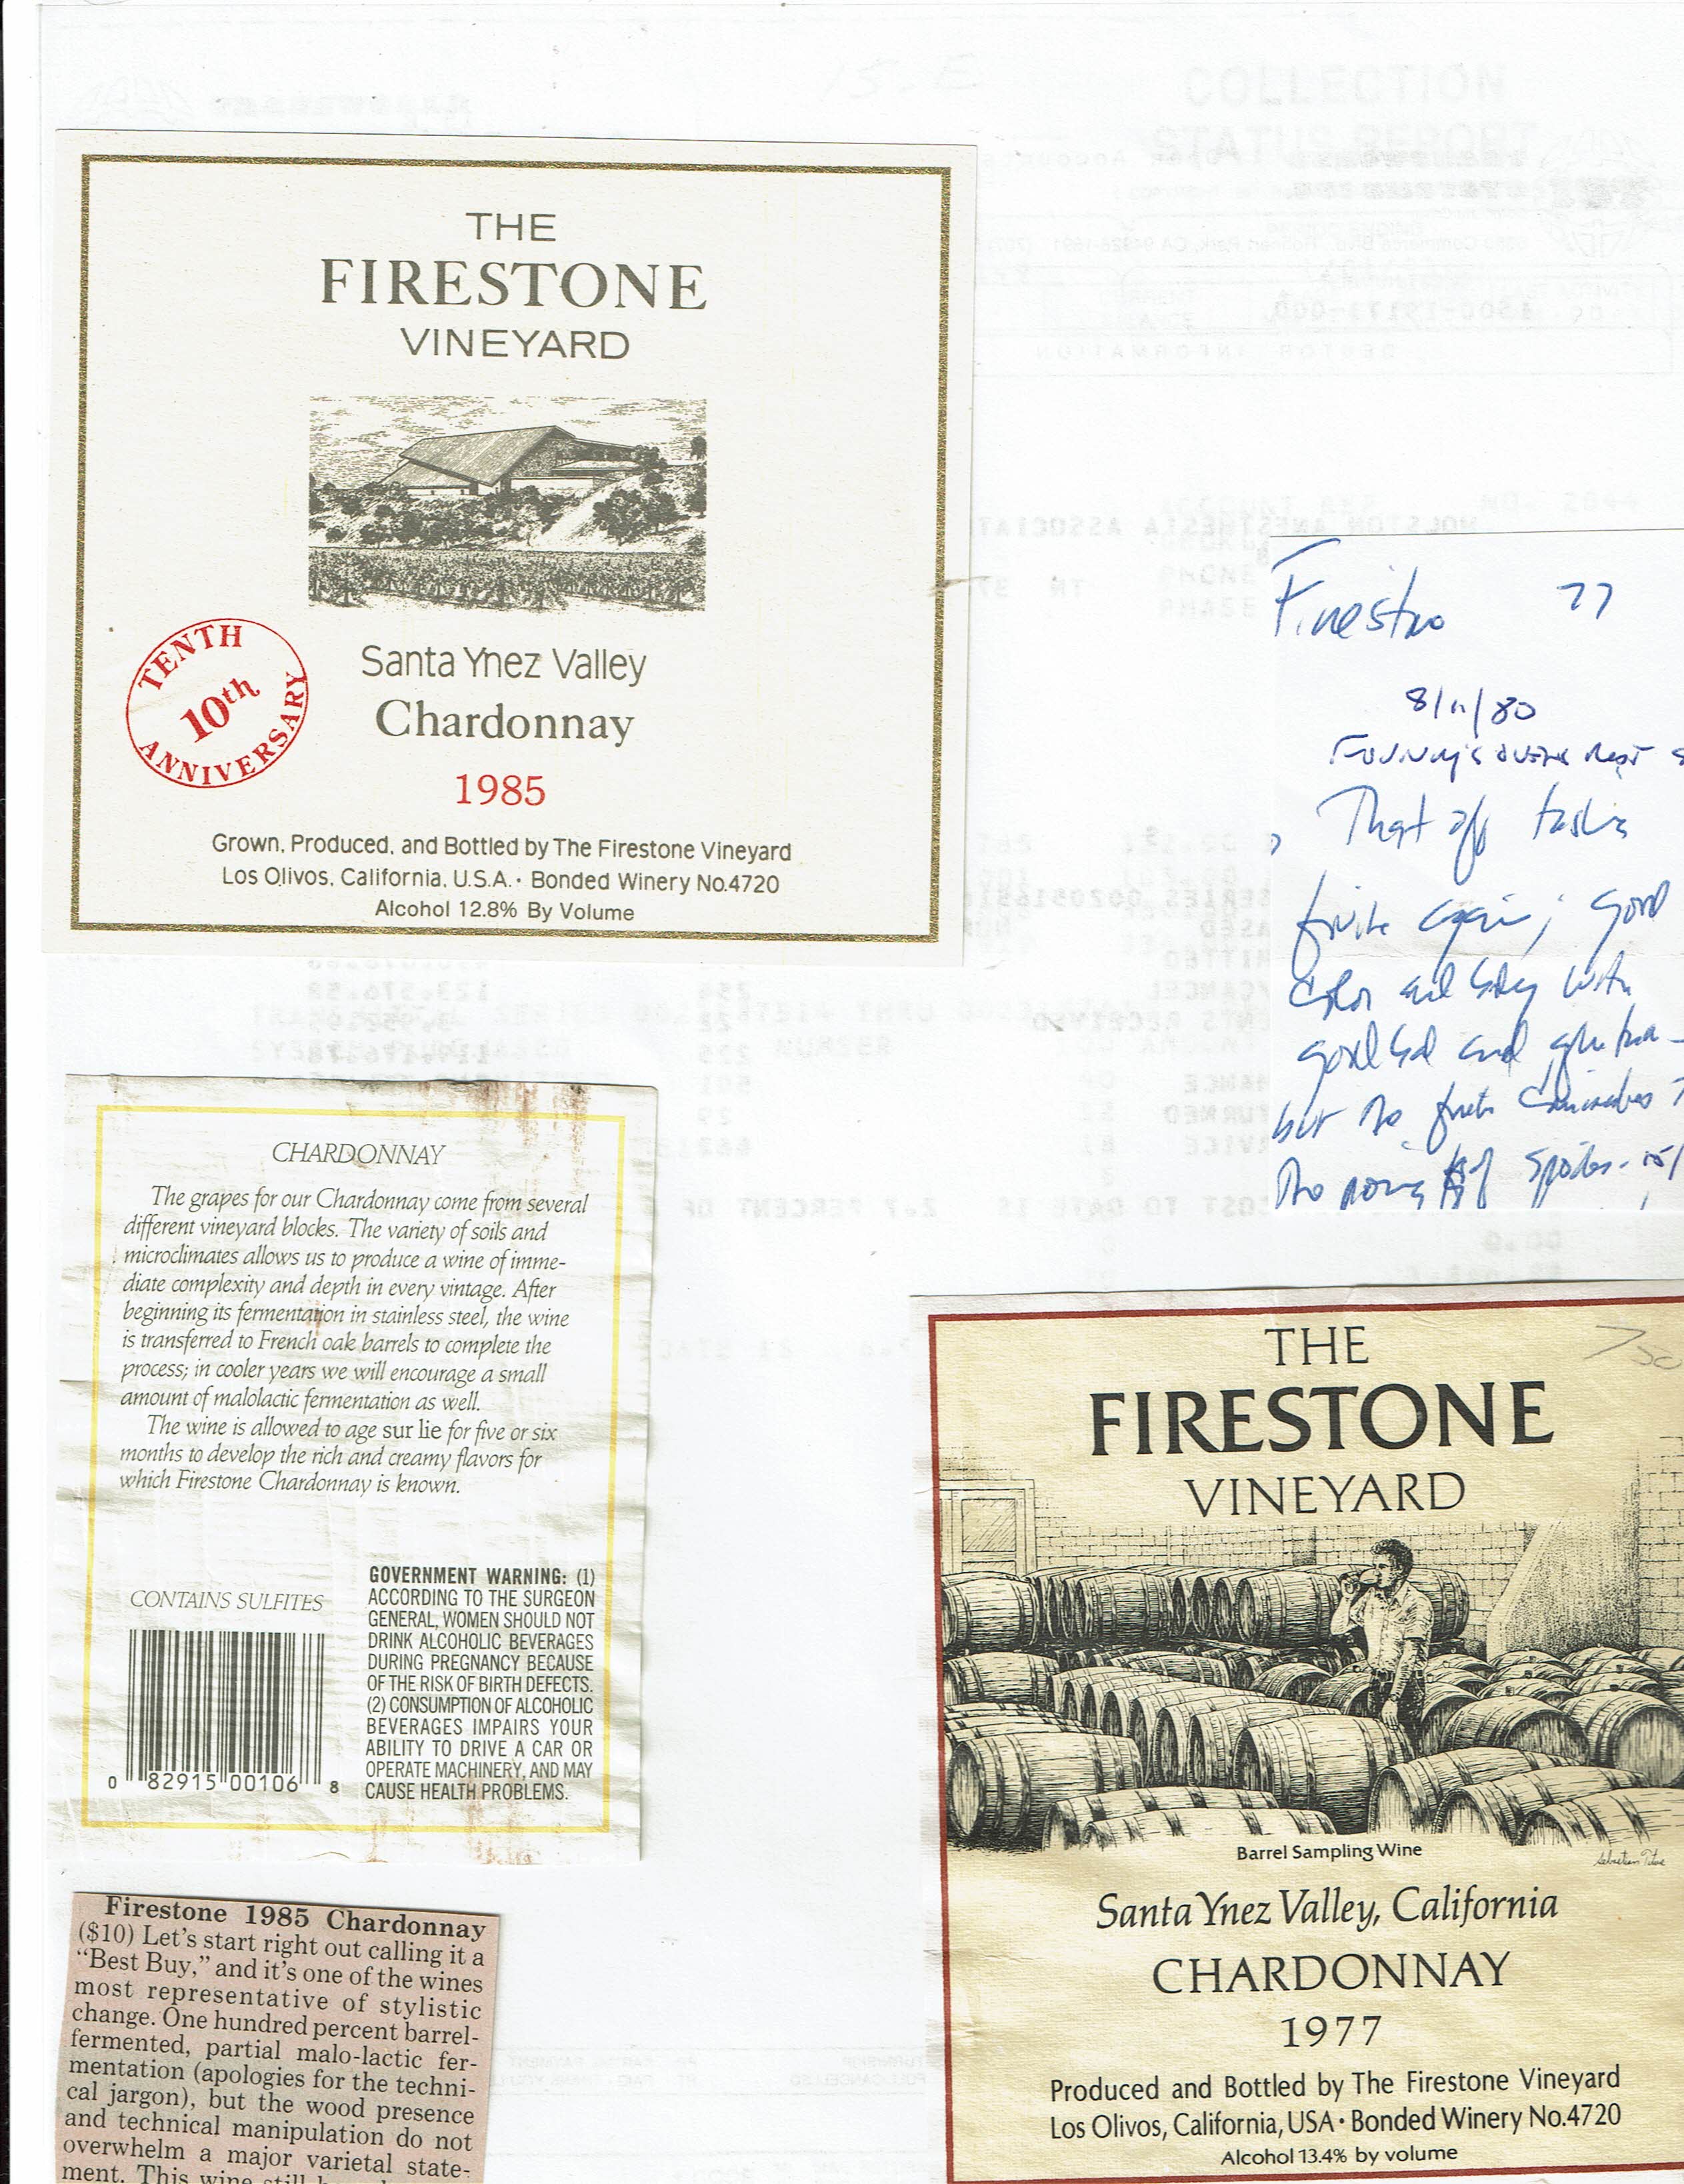 THE
FIRESTONE
VINEYARD
TENTH
10th
ANNIVERSARY
Santa Ynez Valley
Chardonnay
1985
Grown, Produced, and Bottled by The Firestone Vineyard
Los Olivos, California, U.S.A. • Bonded Winery No.4720
Alcohol 12.8% By Volume
77
8/11/80
That off
again; good
color and body with
good
but no fruit
no
CHARDONNAY
The grapes for our Chardonnay come from several
different vineyard blocks. The variety of soils and
microclimates allows us to produce a wine of imme-
diate complexity and depth in every vintage. After
beginning its fermentation in stainless steel, the wine
is transferred to French oak barrels to complete the
process; in cooler years we will encourage a small
amount of malolactic fermentation as well.
The wine is allowed to age sur lie for five or six
months to develop the rich and creamy flavors for
which Firestone Chardonnay is known.
CONTAINS SULFITES
GOVERNMENT WARNING: (1)
ACCORDING TO THE SURGEON
GENERAL, WOMEN SHOULD NOT
DRINK ALCOHOLIC BEVERAGES
DURING PREGNANCY BECAUSE
OF THE RISK OF BIRTH DEFECTS.
(2) CONSUMPTION OF ALCOHOLIC
BEVERAGES IMPAIRS YOUR
ABILITY TO DRIVE A CAR OR
OPERATE MACHINERY, AND MAY
CAUSE HEALTH PROBLEMS.
0 82915 00106 8
Firestone 1985 Chardonnay
($10) Let's start right out calling it a
"Best Buy," and it's one of the wines
most representative of stylistic
change. One hundred percent barrel-
fermented, partial malo-lactic fer-
mentation (apologies for the techni-
cal jargon), but the wood presence
and technical manipulation do not
overwhelm a major varietal state-
ment. This wine still
THE
FIRESTONE
VINEYARD
Barrel Sampling Wine
Santa Ynez Valley, California
CHARDONNAY
1977
Produced and Bottled by The Firestone Vineyard
Los Olivos, California, USA • Bonded Winery No.4720
Alcohol 13.4% by volume